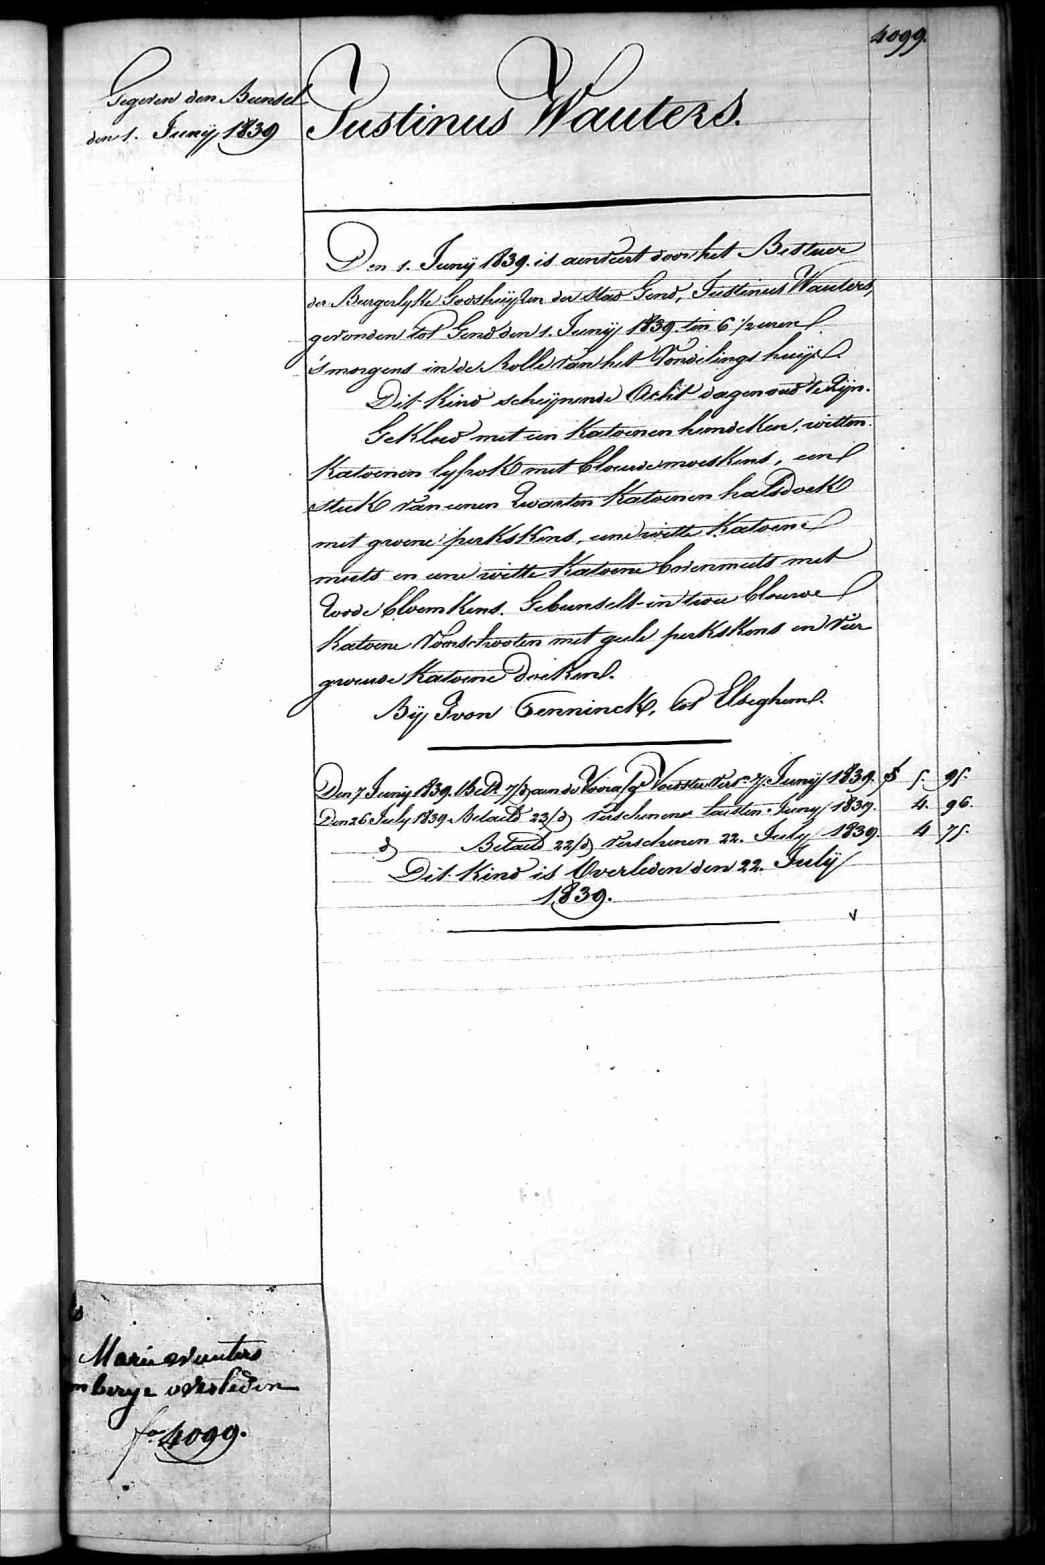 4099.
Gegeven den Bunsel
den 1. Junij 1839
Justinus Wauters.
Den 1. Junij 1839. is aenveert door het Bestuer
der Burgerlyke Godshuijzen der stad Gend, Justinus Wauters,
gevonden tot Gend den 1. Junij 1839. ten 6 1/2 uren
's morgens in de Rolle van het Vondelings huijs.
Dit Kind scheijnende Acht dagen oud te zijn.
Gekleed met een Katoenen hemdeken, witten
Katoenen lyfrok met blouwe moeskens, een
stuk van eenen zwarten Katoenen halsdoek
met groene perkskens, eene witte Katoene
muts en eene witte Katoene bovenmuts met
roode bloemkens. Gebunselt in twee blouwe
Katoene Voorschooten met geele perkskens en vier
grouwe Katoene doeken.
Bij Ivon Tenninck, tot Elseghem.
Den 7 Junij 1839. Bet. 7/d aan de Voorz. Voedster vers. 7 Junij 1839. 5. 95.
Den 26 July 1839 Betaeld 23/d verschenen laesten Juny 1839. 4. 96.
d Betaeld 22/d verschenen 22. July 1839. 4 75.
Dit Kind is Overleden den 22. Julij
1839.
Marie wauters
berge overleden
fo 4099.